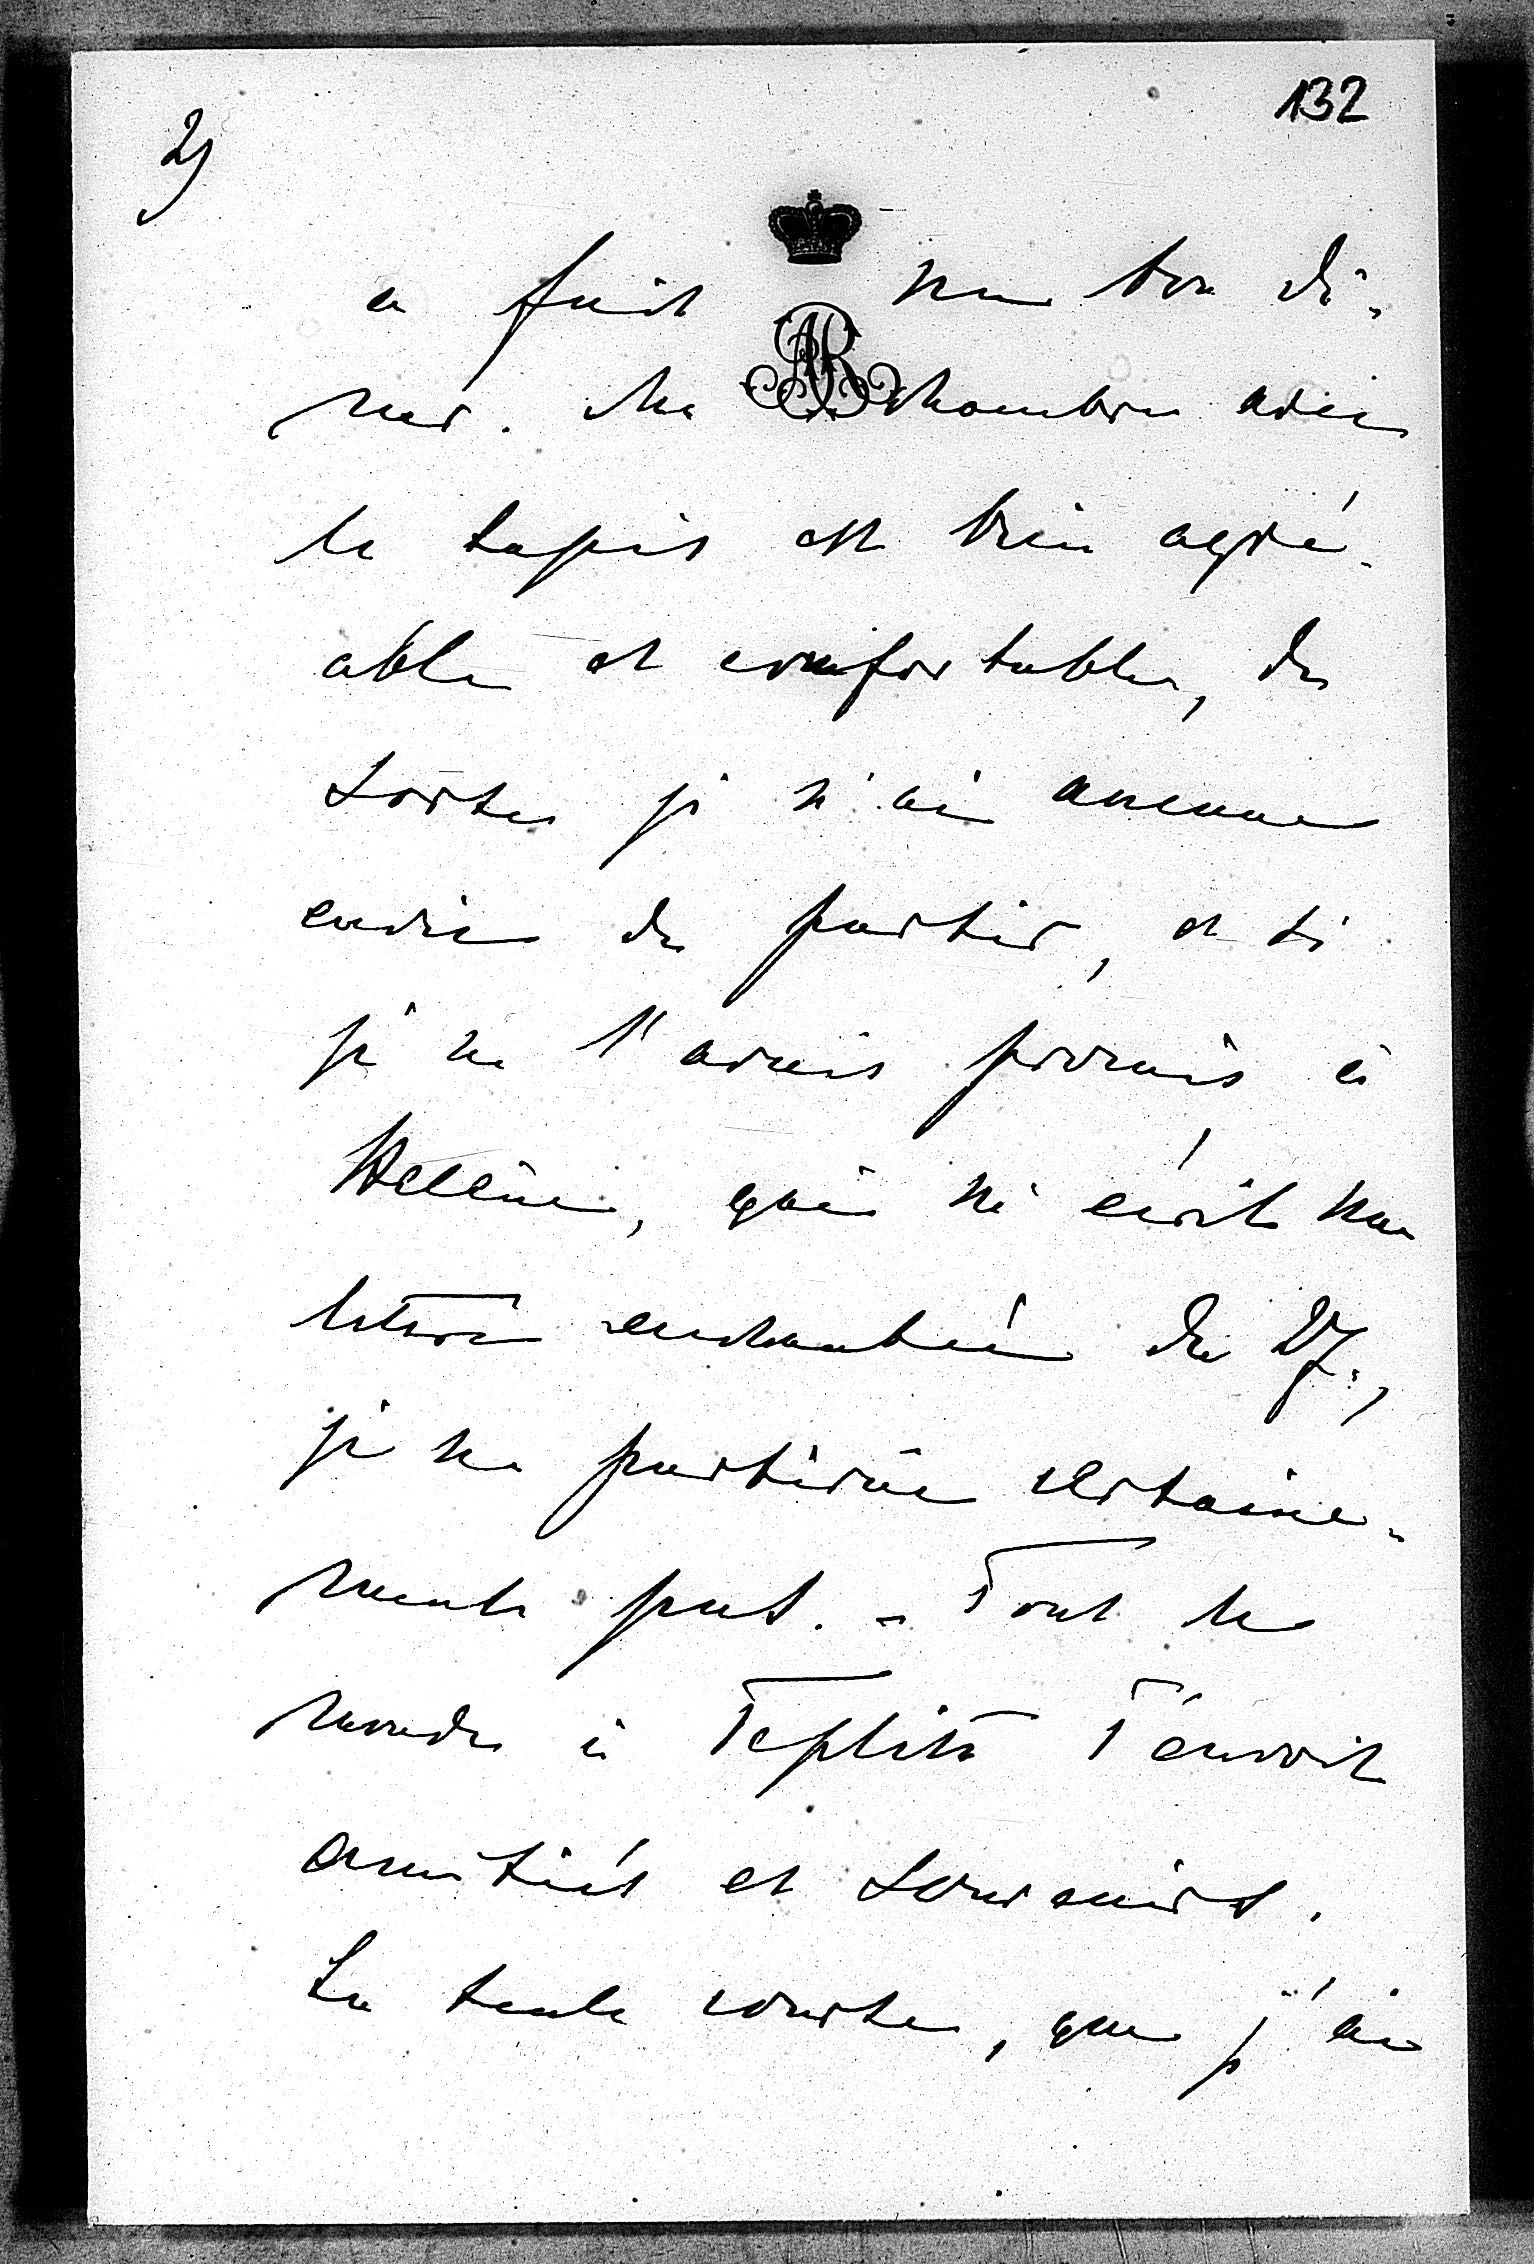 132
2)
a fait un bon dî-
ner. Ma chambre avec
le tapis est bien agré-
able et comfortable, de
sorte je n'ai aucune
envie de partir, et si
je ne l'avais promis à
Hélène, qui m'écrit une
lettre enchantée de V.,
je ne partirais certaine-
ment pas. - Tout le
monde à Teplitz t'envoit
amitiés et souvenirs.
La seule course, que j'ai